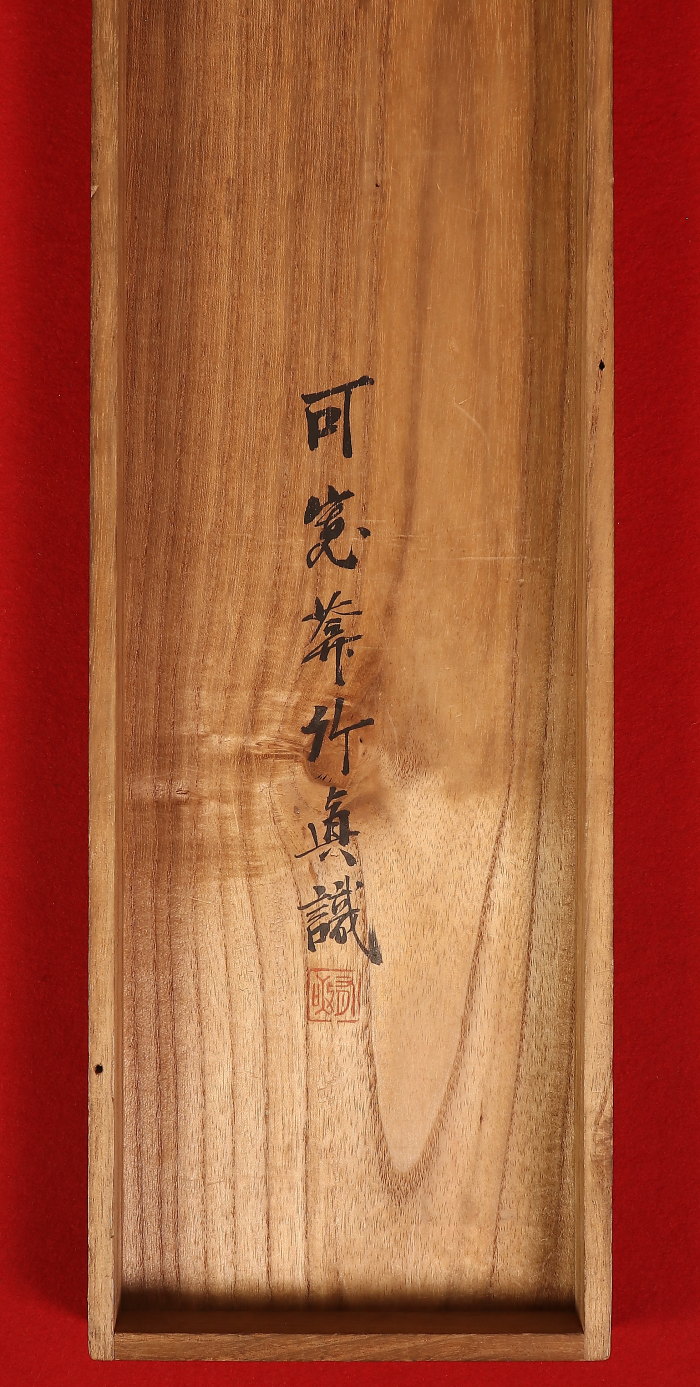 可寛葊竹真識